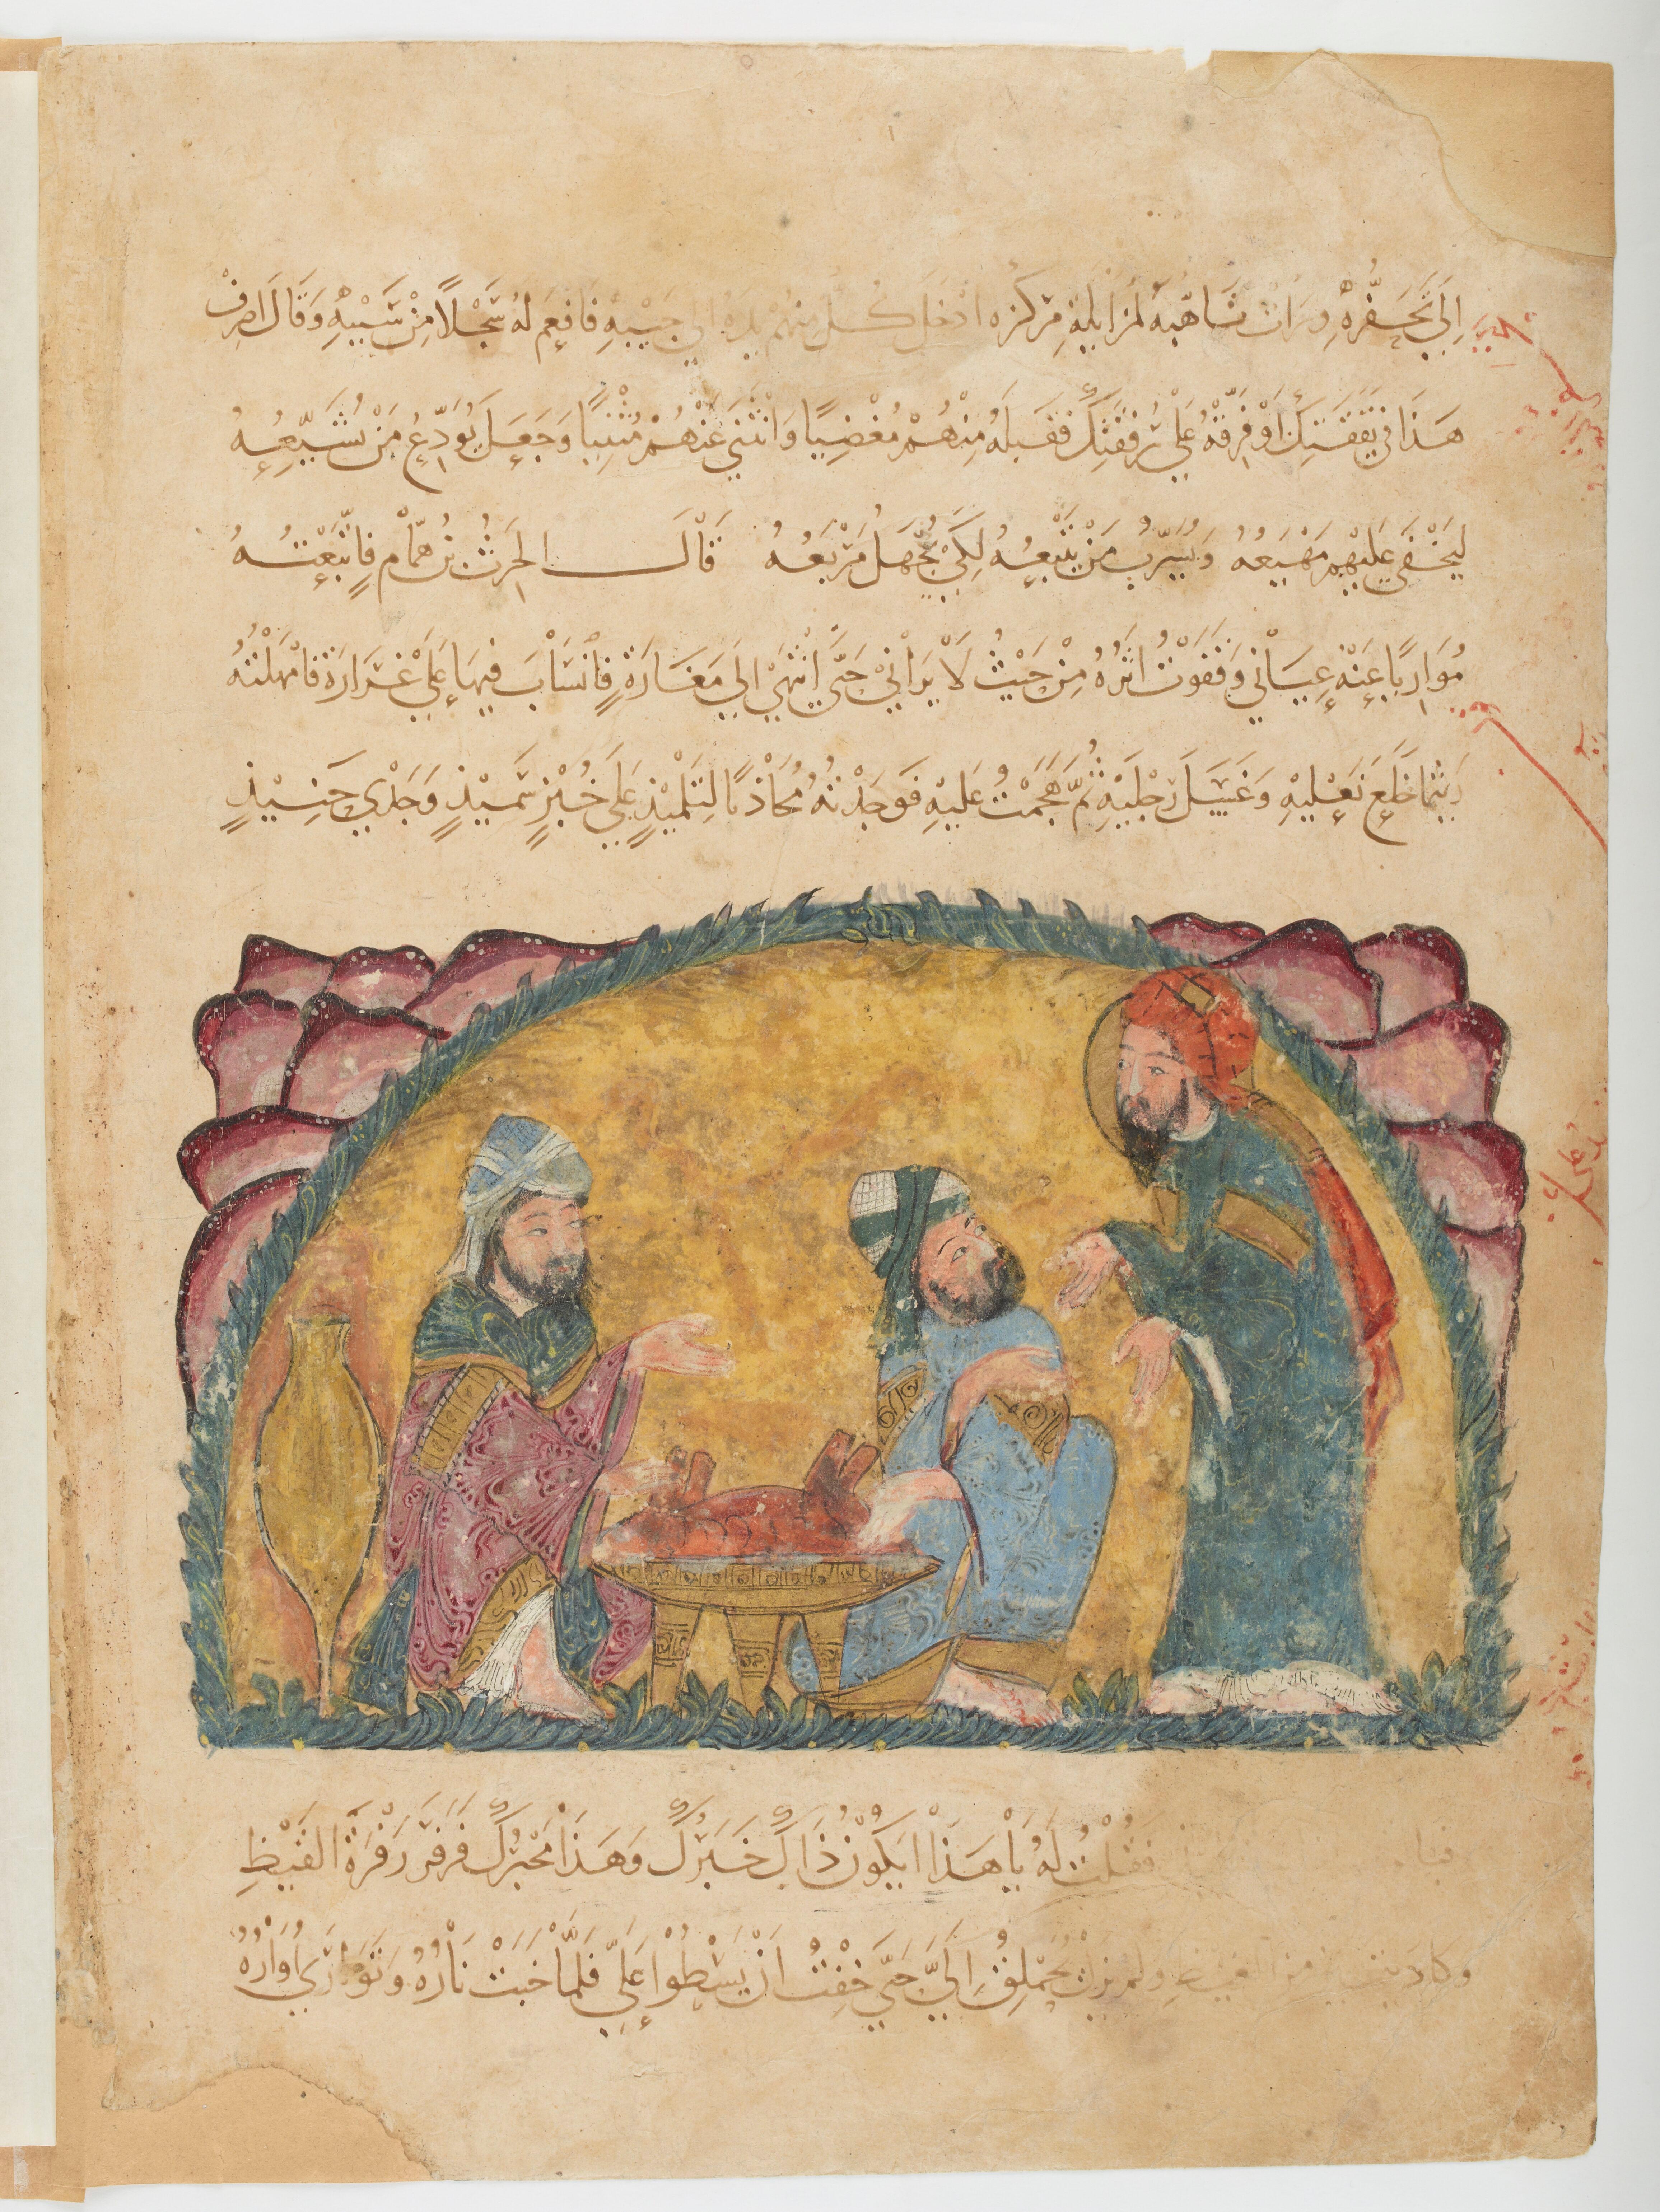 إِلَى تَحَفُّزِهِ وَرَأَتْ تَأَهُّبَهُ لِمُزَايَلَةِ مَرْكَزِهِ ادْخَلَ كُلٌّ مِنْهُمْ يَدَهُ فِي جَيْبِهِ فَافْعَمَ لَهُ سَجْلًا مِنْ سَيْبِهِ وَقَالَ اصْرِفْ
هَذَا فِي نَفَقَتِكَ أَوْ فَرِّقْهُ عَلَى رُفْقَتِكَ فَقَبِلَهُ مِنْهُمْ مُغْضِيًا وَانْثَنَى عَنْهُمْ مُثْنِيًا وَجَعَلَ يُوَدِّعُ مَنْ يُشَيِّعُهُ
لِيَخْفَى عَلَيْهِمْ مَهْيَعُهُ وَيُسَرِّبُ مَنْ يَتْبَعُهُ لِكَيْ يُجْهَلَ مَرْبَعُهُ قَالَ الحَرِثُ بْنُ هَمَّامٍ فَاتَّبَعْتُهُ
مُوَارِيًا عَنْهُ عِيَانِي وَقَفَوْتُ اثَرَهُ مِنْ حَيْثُ لَا يَرَانِي حَتَّى انْتَهَى الَى مَغَارَةٍ فَانْسَابَ فِيهَا عَلَى غَرَارَةٍ فَامْهَلْتُهُ
رَيْثَمَا خَلَعَ نَعْلَيْهِ وَغَسَلَ رِجْلَيْهِ ثُمَّ هَجَمْتُ عَلَيْهِ فَوَجَدْتُهُ مُحَاذِيًا لِتِلْمِيْذٍ عَلَى خُبْزٍ سَمِيْذٍ وَجَدْيٍ حَنِيْذٍ
فَقُلْتُ لَهُ يَا هَذَا ايَكُوْنُ ذَاكَ خَبَرُكَ وَهَذَا مَخْبَرُكَ فَزَفَرَ زَفْرَةَ القَيْظِ
وكاد يتميز من الغيظ ولم يزل يُحَمْلِقُ الَيَّ حَتَّى خِفْتُ انْ يَسْطُوَا عَلَيَّ فَلَمَّا خَبَتْ نَارُهُ وَتَوَارَى أُوَارُهُ